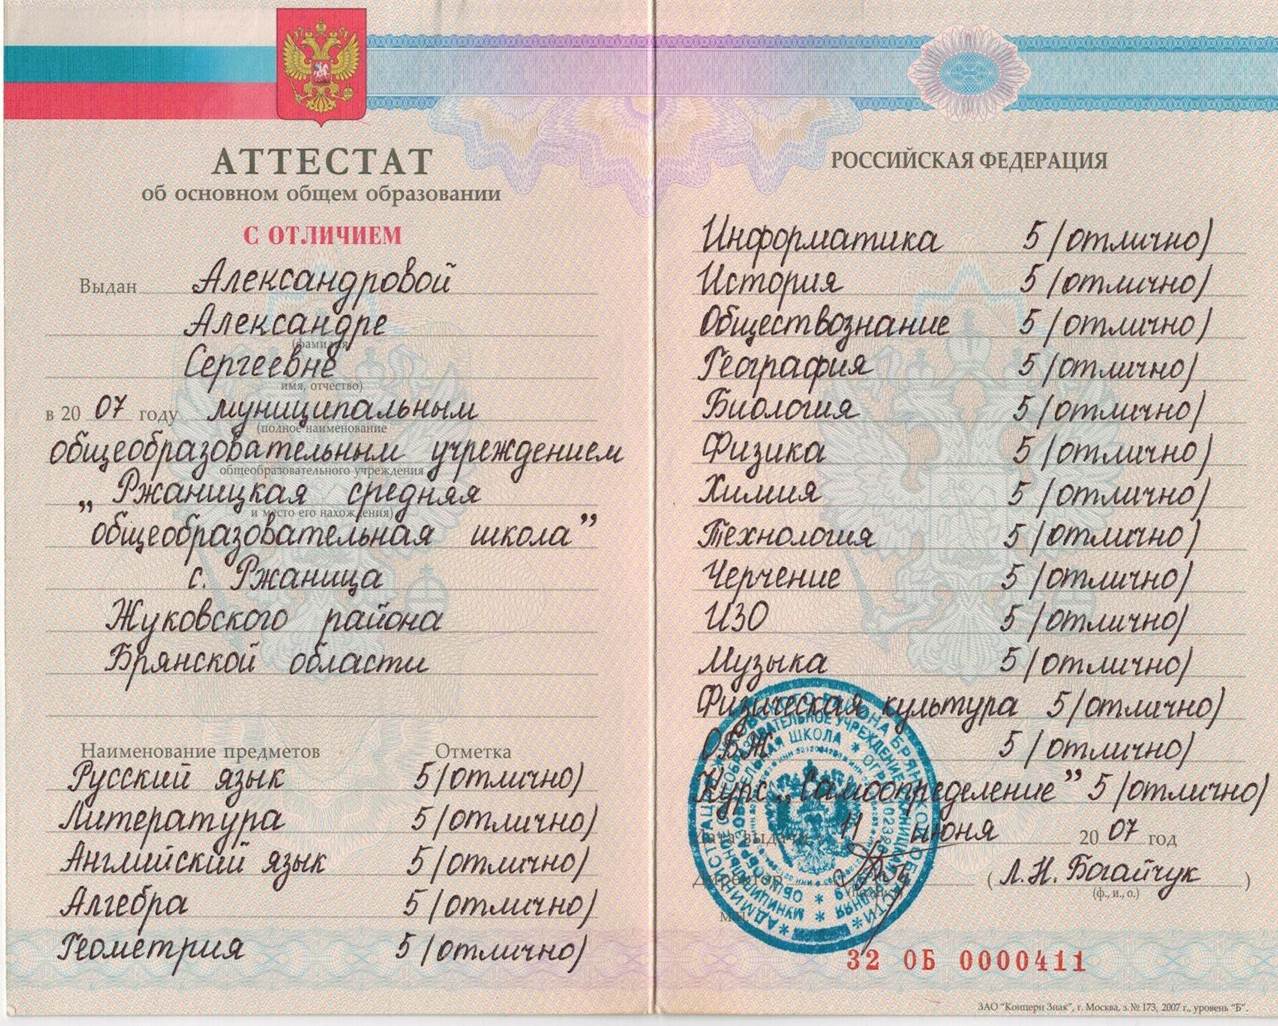 АТТЕСТАТ
об основном общем образовании
С ОТЛИЧИЕМ
Выдан Александровой
Александре
(фамилия,
Сергеевне
имя, отчество)
в 20 07 году муниципальным
(полное наименование
общеобразовательным учреждением
общеобразовательного учреждения
„Ржаницкая средняя
и место его нахождения)
общеобразовательная школа”
с. Ржаница
Жуковского района
Брянской области
Наименование предметов Отметка
Русский язык 5 (отлично)
Литература 5 (отлично)
Английский язык 5 (отлично)
Алгебра 5 (отлично)
Геометрия 5 (отлично)
РОССИЙСКАЯ ФЕДЕРАЦИЯ
Информатика 5 (отлично)
История 5 (отлично)
Обществознание 5 (отлично)
География 5 (отлично)
Биология 5 (отлично)
Физика 5 (отлично)
Химия 5 (отлично)
Технология 5 (отлично)
Черчение 5 (отлично)
ИЗО 5 (отлично)
Музыка 5 (отлично)
Физическая культура 5 (отлично)
ОБЖ 5 (отлично)
Курс „Самоопределение” 5 (отлично)
Дата выдачи 11 июня 20 07 год
Директор (Л.Н. Богайчук)
(ф., и., о.)
32 ОБ 0000411
ЗАО "Концерн Знак", г. Москва, з. № 173, 2007 г., уровень "Б".